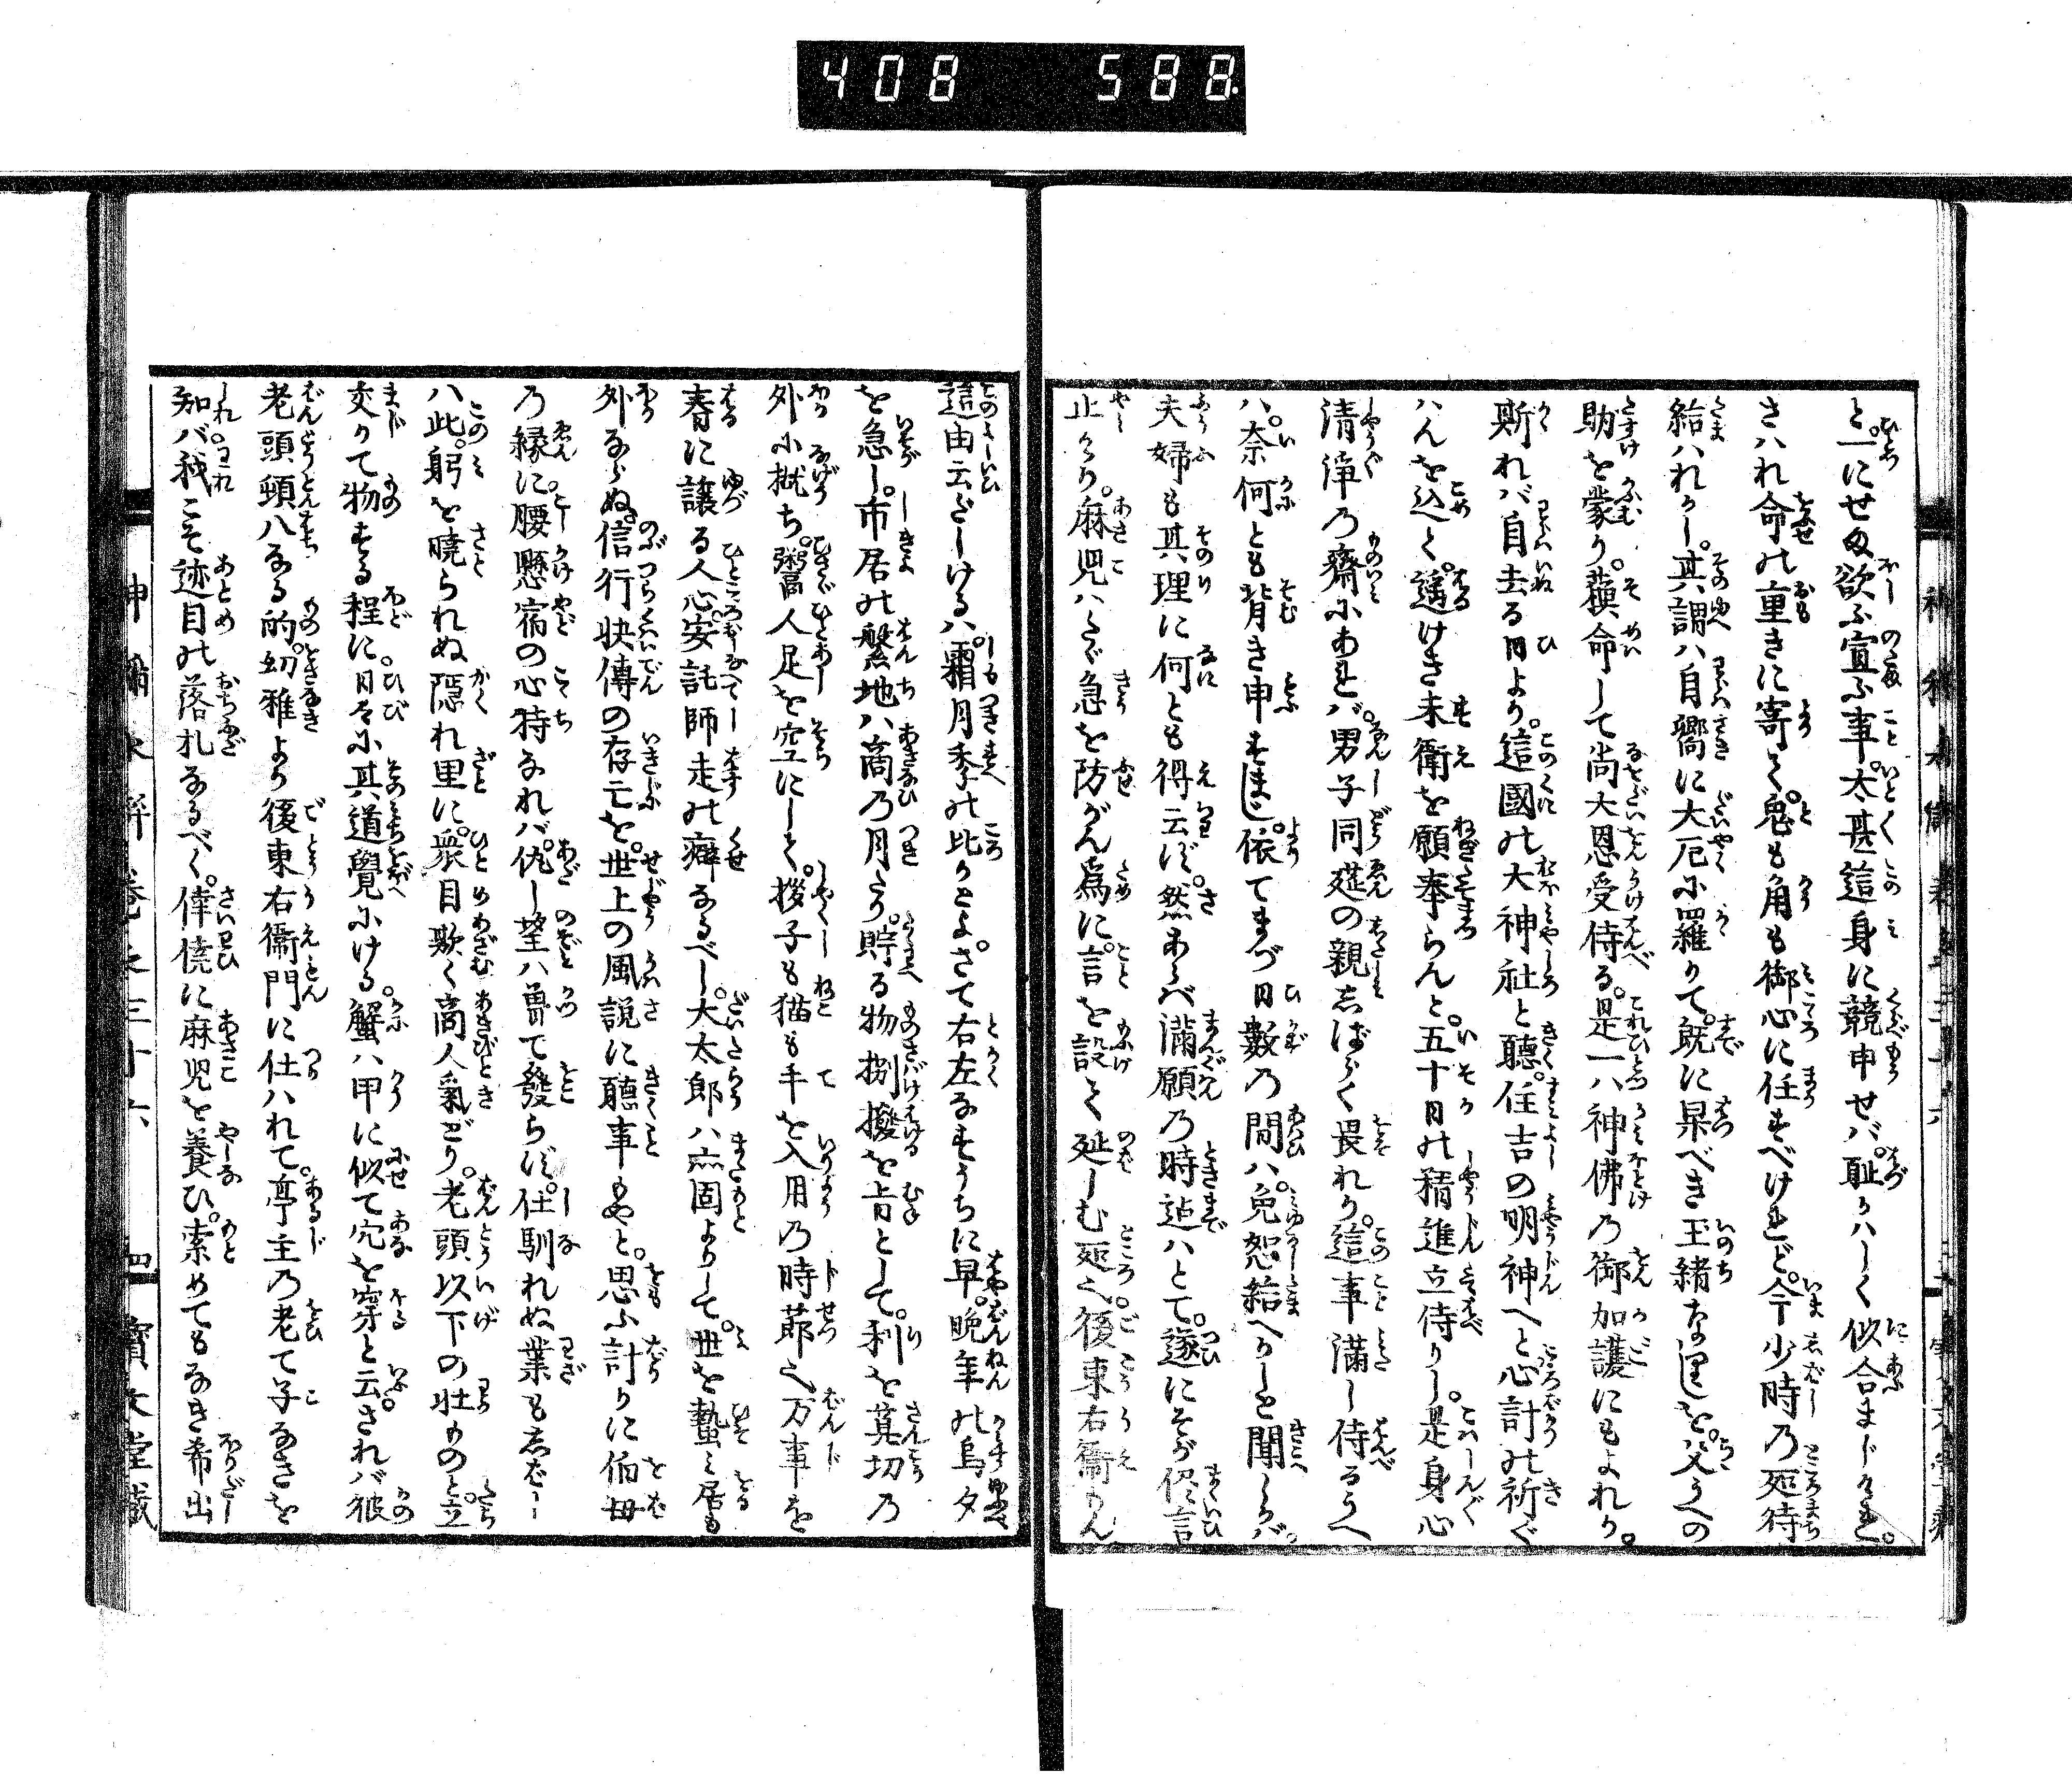 408 588
と一にせぬ欲ふ宣ふ事太甚這身に競申せバ耻かハしく似合まじけれど
さハれ命の重きに寄て鬼も角も御心に任すべけれど今少時乃延待
給ハれかし其謂ハ自嚮に大厄に羅りて既に杲べき玉緒なりしを父うへの
助を蒙り蘓命して尚大恩受侍る是一ハ神佛乃御加護にもよれり
斯れバ自去る日より這國の大神社と聽住吉の明神へと心計の祈ぐ
ハんを込て遥けき末衛を願奉らんと五十日の精進立侍りし是身心
清浄乃齋にあれバ男子同莚の親しばらく畏れり這事満し侍るうへ
ハ奈何とも背き申すまじ依てまづ日數乃間ハ免恕給へかしと聞しかバ
夫婦も其理に何とも得云ず然あらバ滿願乃時迠ハとて遂にそが侭言
止けり麻児ハかく急を防がん為に言を設て延しむ延之後東右衛もん
這由云ざしけるハ霜月季の比かとよさて右左なすうちに早晩年の烏夕
を急し市居の繁地ハ商乃月とか貯る物捌撥を肯として利を莫切乃
外に擲ち鬻人足を空にして拶子も猫も手を入用乃時莭之万事を
春に讓る人心安託師走の癖なるべし大太郎ハ原固よりして世を蟄ミ居も
外ならぬ信行快傳の存亡を世上の風説に聽事もやと思ふ計りに伯母
乃縁に腰懸宿の心持なれバ仇し望ハ曽て發らず仕馴れぬ業も志ばし
ハ此躬を曉られぬ隠れ里に衆目欺く商人氣どり老頭以下の壮ものと立
交りて物する程に日々に其道覺にける蟹ハ甲に似て穴を穿と云されバ彼
老頭頓八なる的幼稚より後東右衛門に仕ハれて亭主乃老て子なきを
知バ我こそ迹目の落札なるべく倖僥に麻児を養ひ索めてもなき希出
神稲水滸傳卷之三十六 四 寶文堂藏